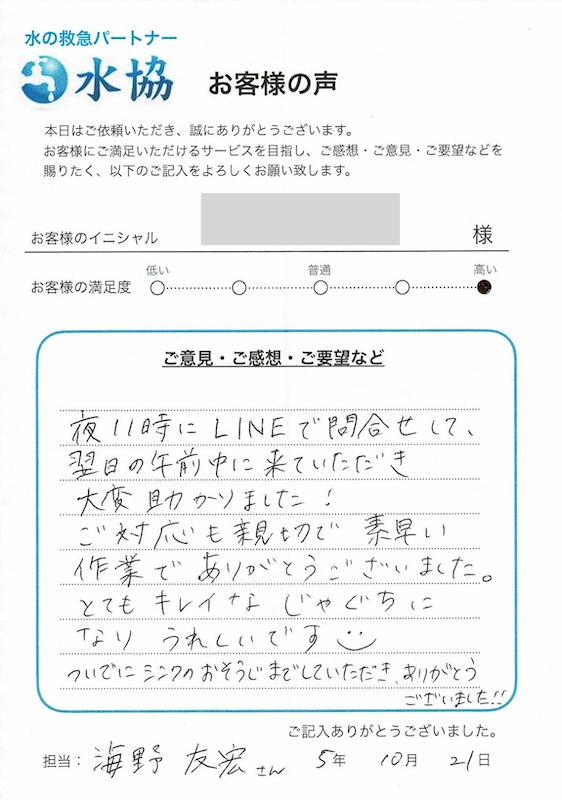 水の救急パートナー
水協 お客様の声
本日はご依頼いただき、誠にありがとうございます。
お客様にご満足いただけるサービスを目指し、ご感想・ご意見・ご要望などを
賜りたく、以下のご記入をよろしくお願い致します。
お客様のイニシャル 様
低い 普通 高い
お客様の満足度
ご意見・ご感想・ご要望など
夜11時にLINEで問合せして、
翌日の午前中に来ていただき
大変助かりました!
ご対応も親切で 素早い
作業で ありがとうございました。
とても キレイな じゃぐちに
なり うれしいです
ついでに シンクの おそうじまでしていただき、ありがとう
ございました!!
ご記入ありがとうございました。
担当: 海野 友宏さん 5年 10月 21日